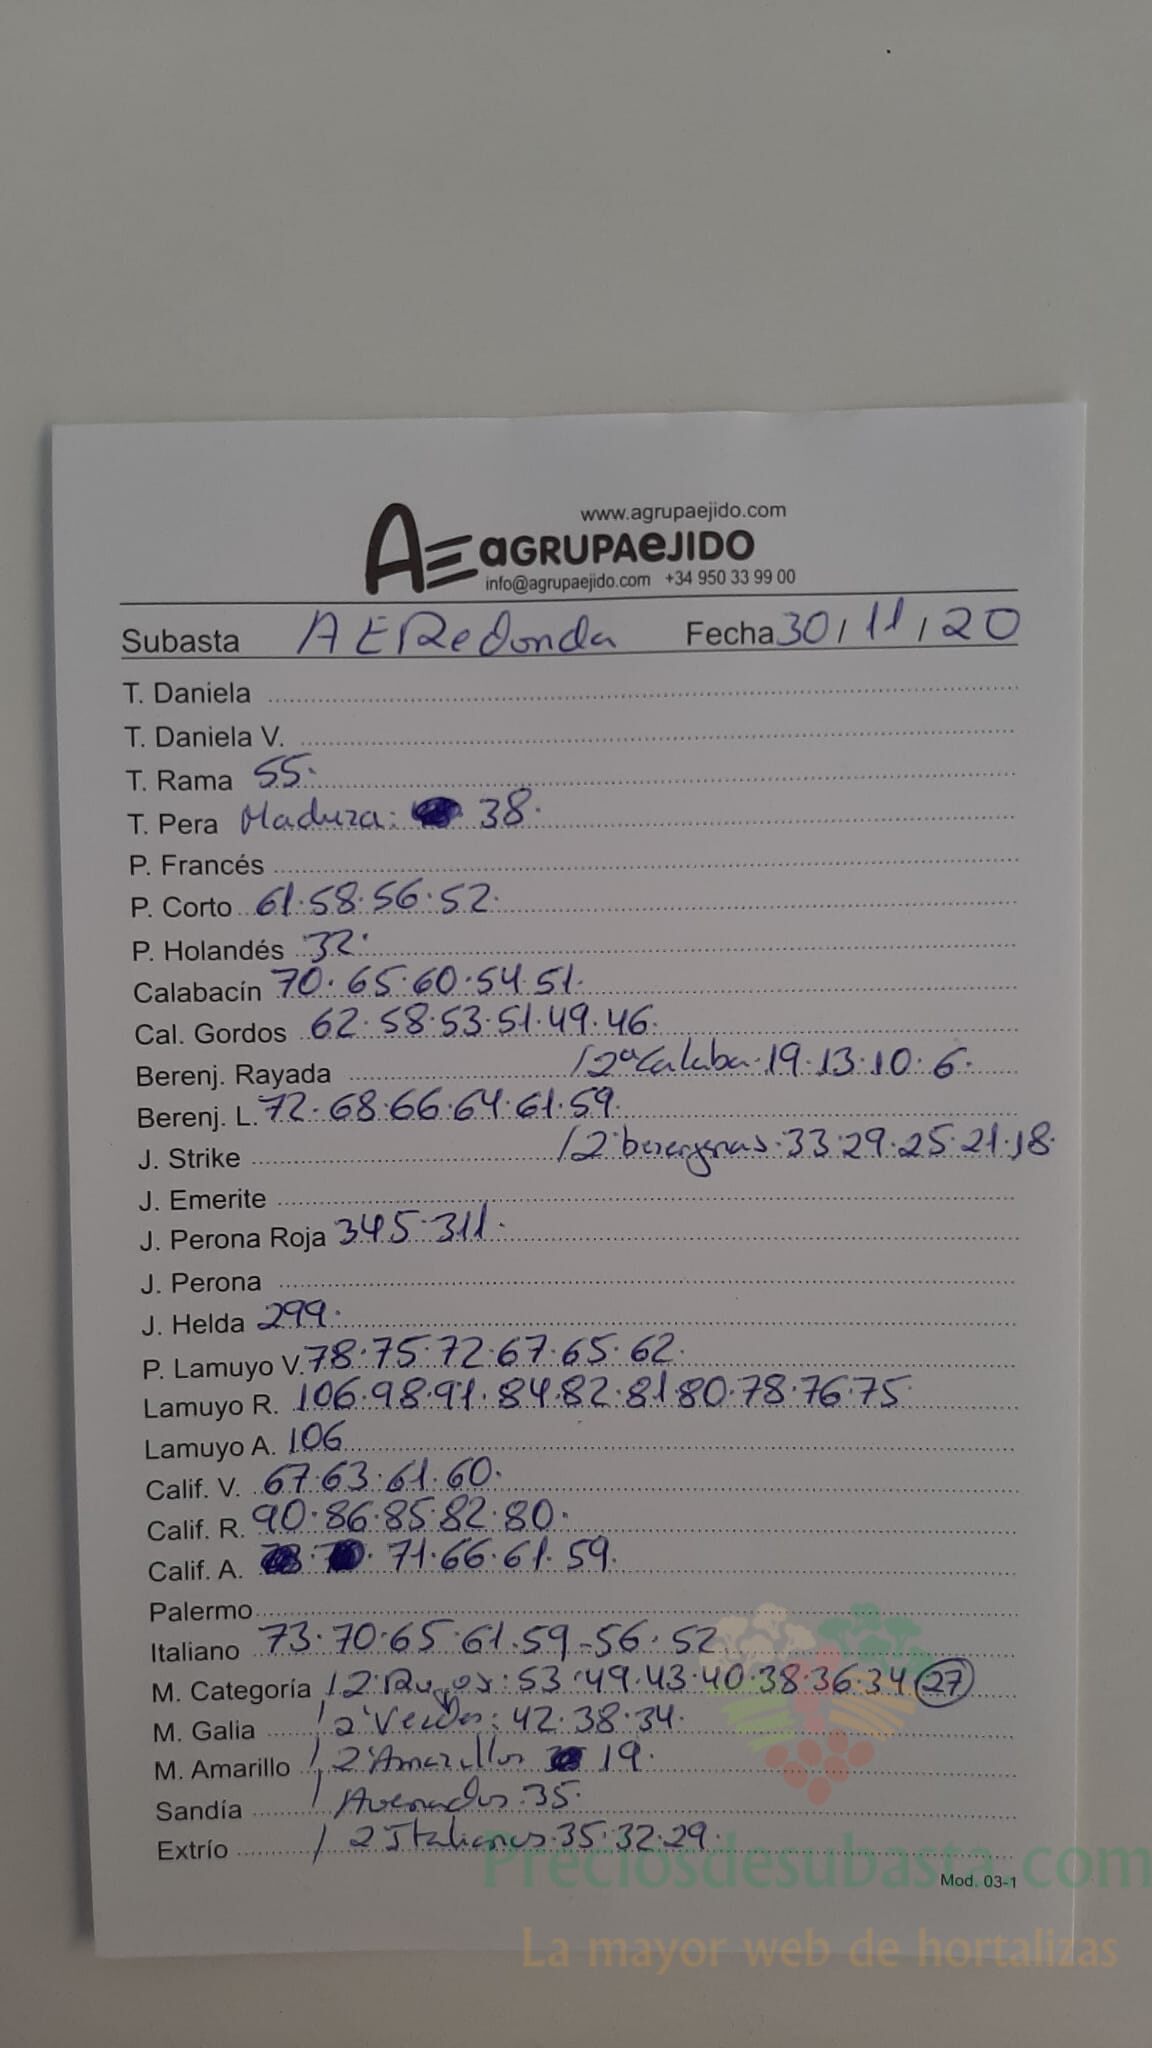 www.agrupaejido.com
AE aGRUPAeJIDO
info@agrupaejido.com +34 950 33 99 00
Subasta AERedonda Fecha 30/11/20
T. Daniela
T. Daniela V.
T. Rama 55.
T. Pera Madura: 38.
P. Francés
P. Corto 61.58.56.52.
P. Holandés 32.
Calabacín 70.65.60.54.51.
Cal. Gordos 62.58.53.51.49.46.
Berenj. Rayada /2ª Calaba.19.13.10.6.
Berenj. L. 72.68.66.64.61.59.
J. Strike /2 berengenas.33.29.25.21.18.
J. Emerite
J. Perona Roja 345.311.
J. Perona
J. Helda 299.
P. Lamuyo V. 78.75.72.67.65.62.
Lamuyo R. 106.98.91.84.82.81.80.78.76.75
Lamuyo A. 106
Calif. V. 67.63.61.60.
Calif. R. 90.86.85.82.80.
Calif. A. 71.66.61.59.
Palermo
Italiano 73.70.65.61.59-56.52
M. Categoría /2 Rojos: 53.49.43.40.38.36.34 27
M. Galia /2 Verdes: 42.38.34.
M. Amarillo /2 Amarillos 19.
Sandía / Asurados.35.
Extrío / 2 Italianos.35.32.29.
Mod. 03-1
Preciosdesubasta.com
La mayor web de hortalizas